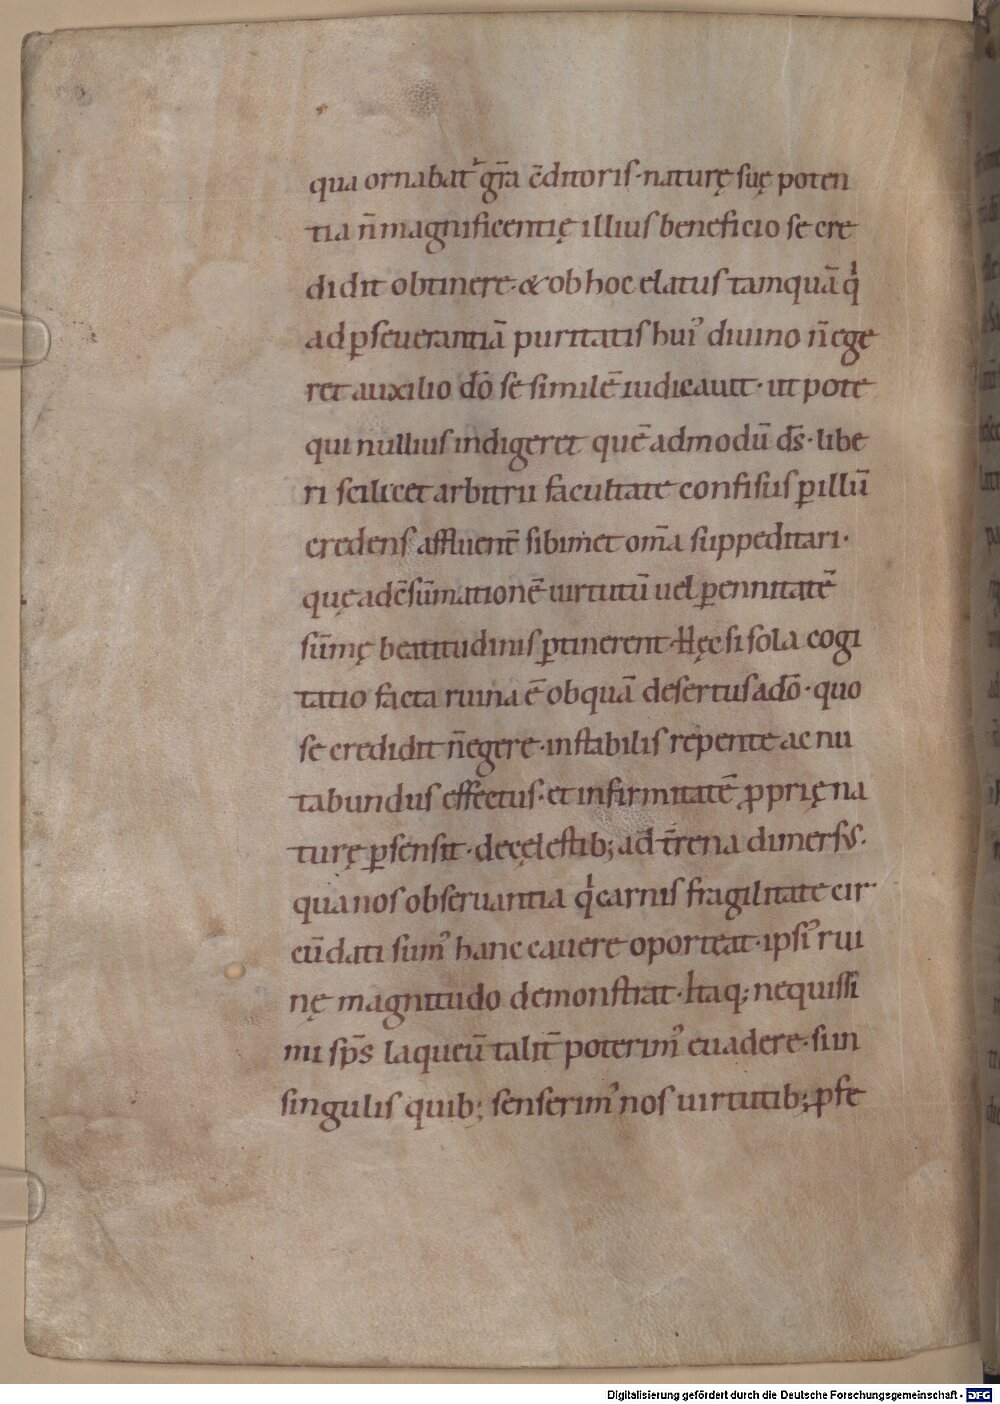 qua ornabat᷑ gr̄a c̄ditoris· naturę suę poten
tia n̄ magnificentię illius beneficio se cre
didit obtinere· & ob hoc elatus tamquā qi
ad ꝑseuerantiā puritatis hui᾿ diuino n̄ ege
ret auxilio dō se similē iudicauit· ut pote
qui nullius indigeret quē admodū ds̄· libe
ri scilicet arbitrii facultate confisus ꝑ illū
credens affluent̄ sibimet om̄a suppeditari·
quę ad c̄sūmationē uirtutū uel ꝑennitatē
sūmę beatitudinis ꝑtinerent· Hęc si sola cogi
tatio facta ruina ē ob quā desertus a dō· quo
se credidit n̄ egere· instabilis repente ac nu
tabundus effectus· et infirmitatē ꝓprię na
turę ꝑsensit· de cęlestib; ad t̄rena dimersus·
qua nos obseruantia qi carnis fragilitate cir
cūdati sum᾿ hanc cauere oporteat· ipsi᾿ rui
nę magnitudo demonstrat· Itaq; nequissi
mi sp̄s laqueū talit̄ poterim᾿ euadere· si in
singulis quib; senserim᾿ nos uirtutib; ꝓfe
Digitalisierung gefördert durch die Deutsche Forschungsgemeinschaft - DFG